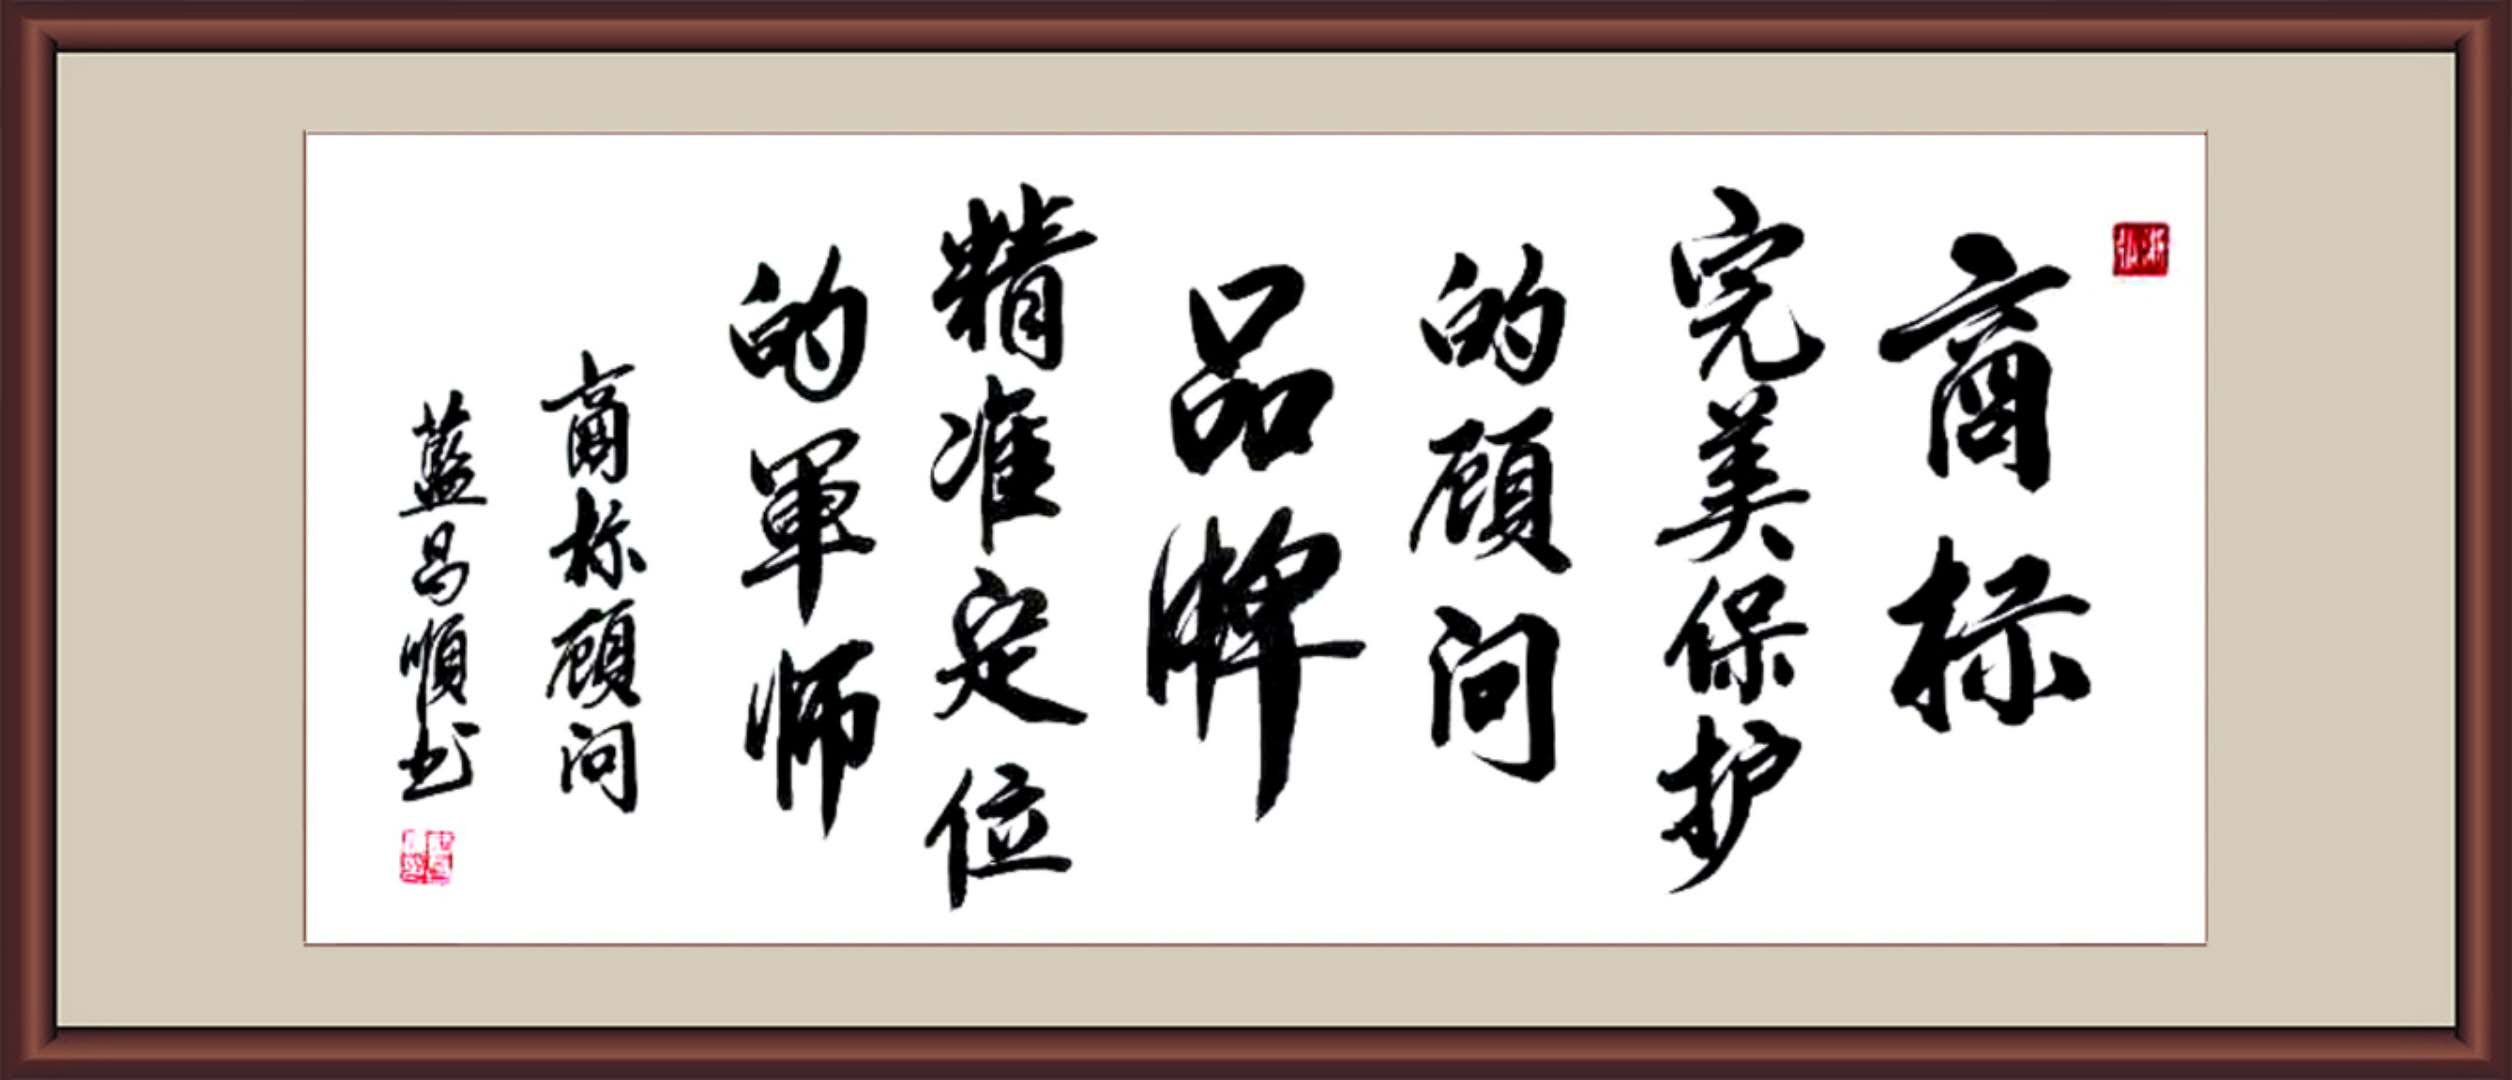 商标
完美保护
的顾问
品牌
精准定位
的軍师
商标顾问
藍昌順书